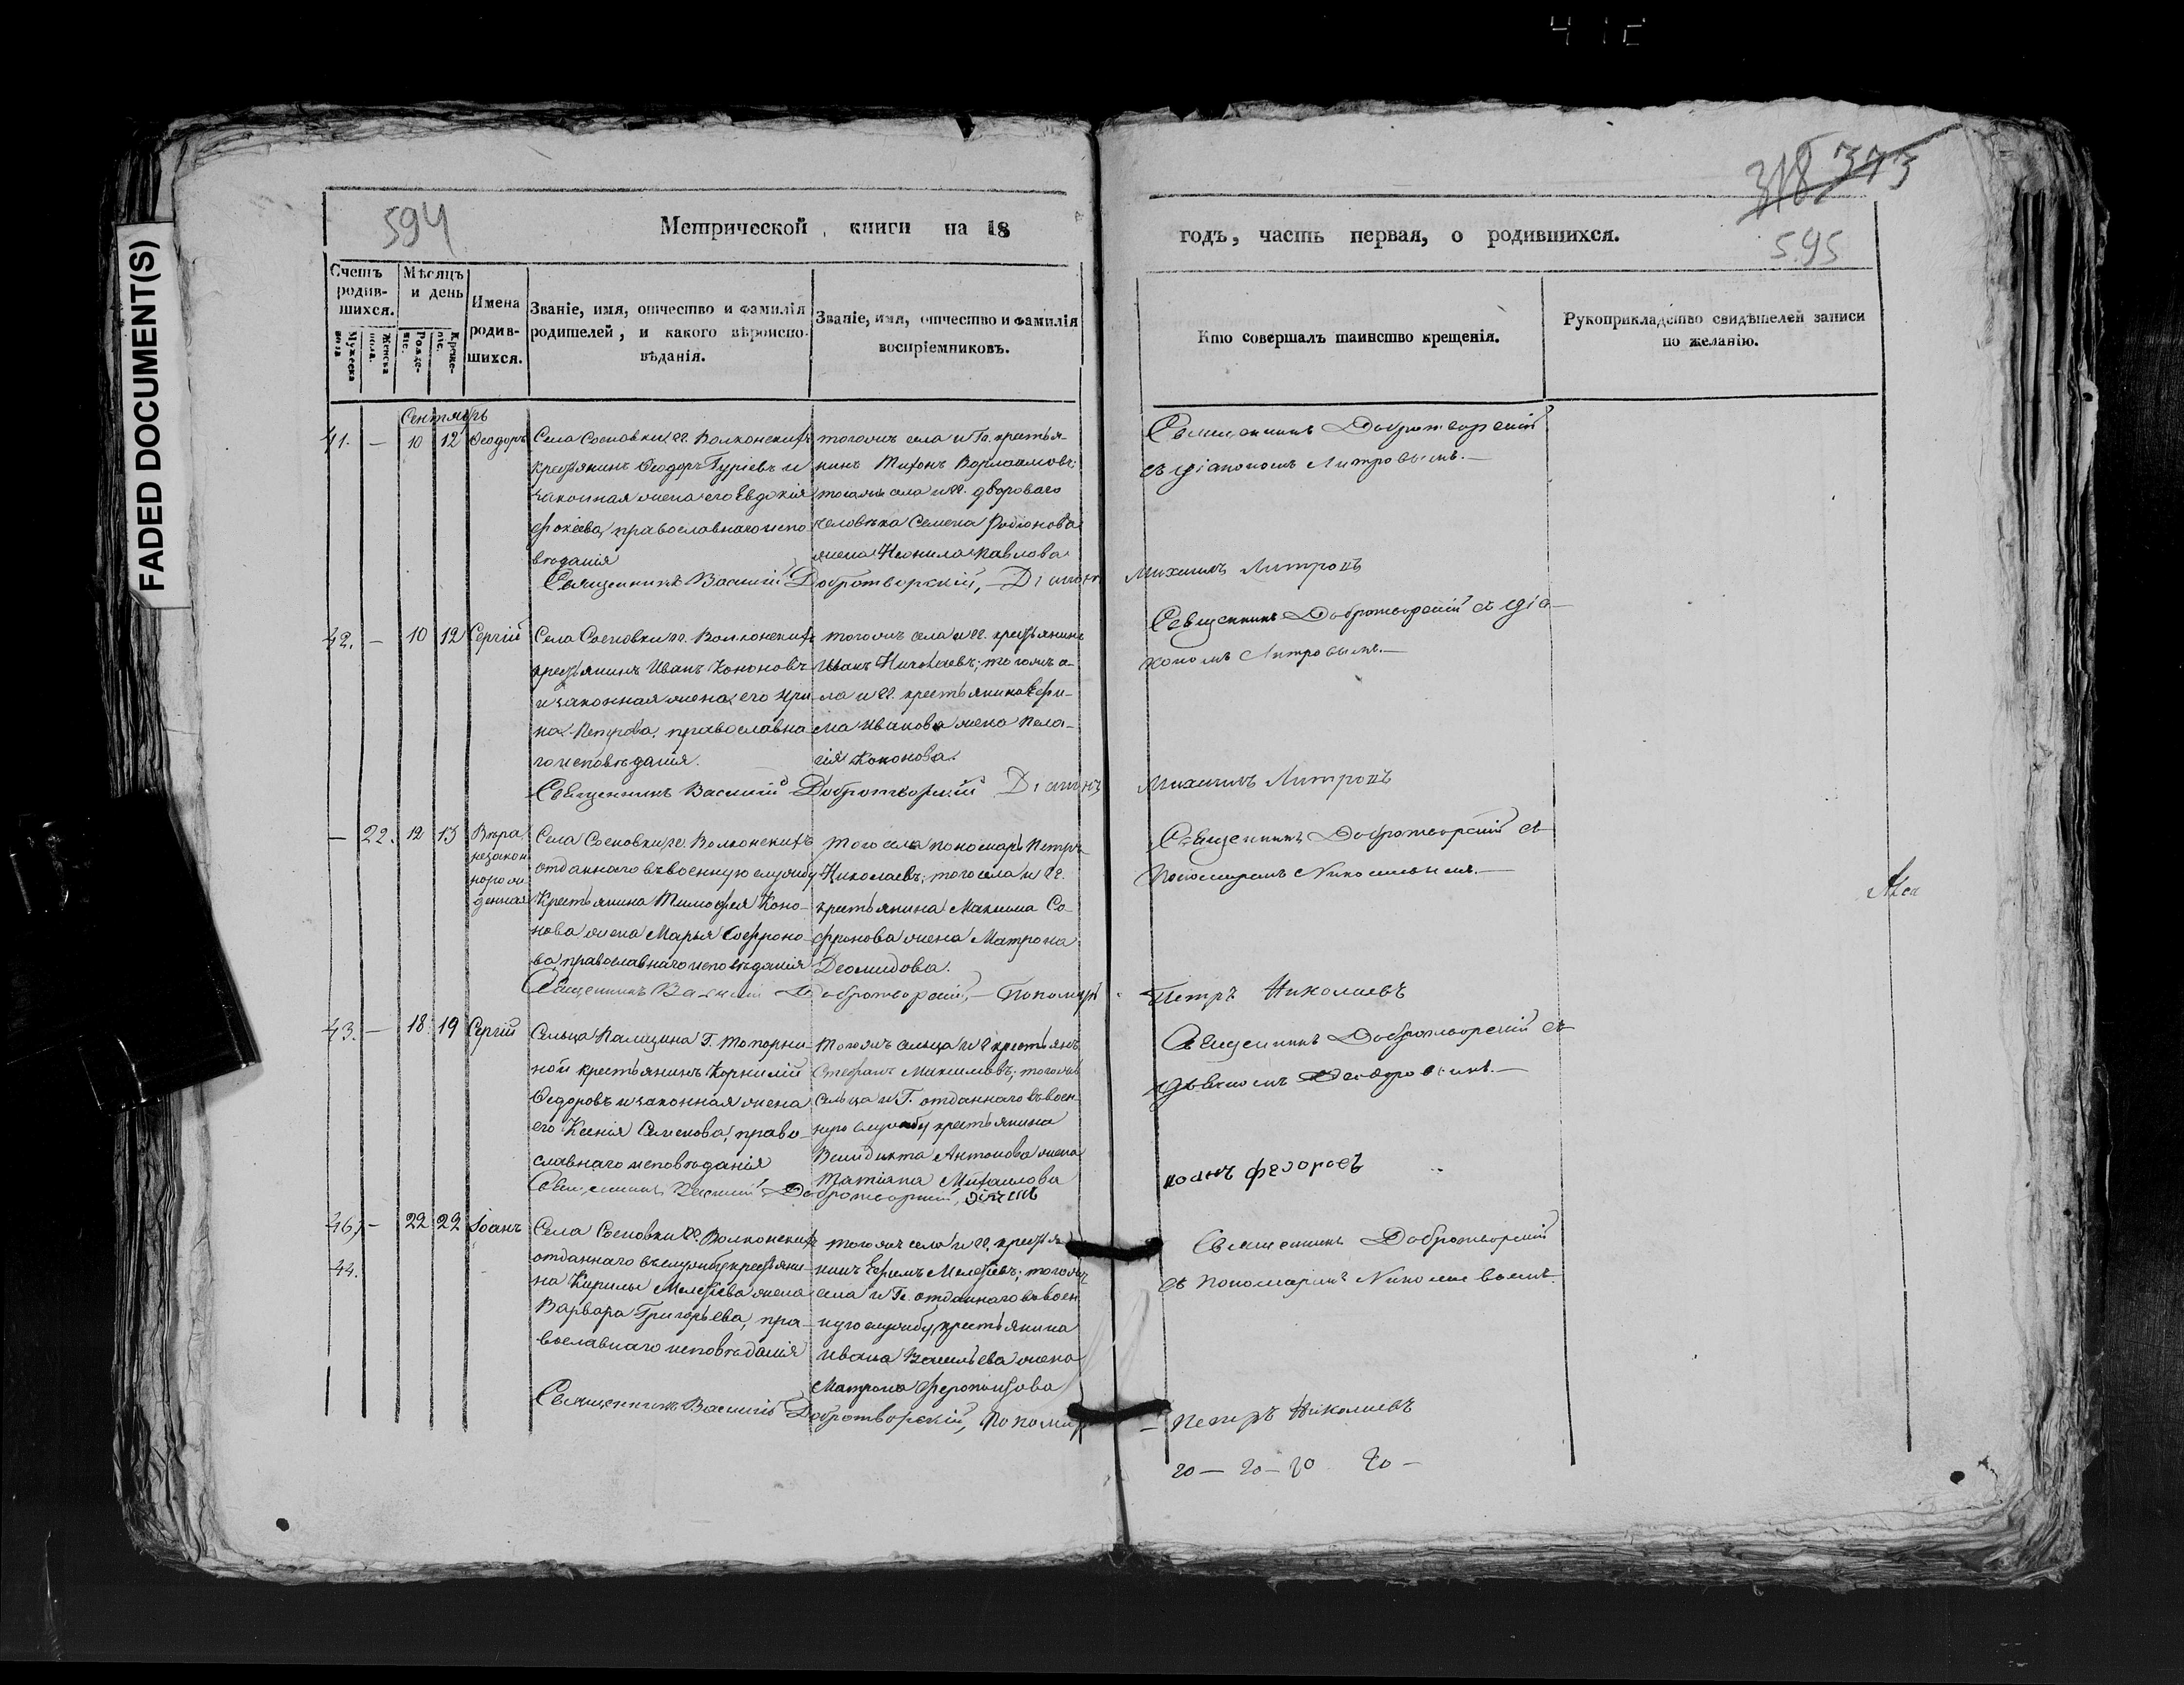 FADED DOCUMENT(S)
594
Метрической книги на 18
Счетъ родив-шихся.
Мужеска пола
Женска пола.
Мѣсяцъ и день
Рожде-ніе.
Креще-ніе.
Имена родив-шихся.
Званіе, имя, отчество и фамилія родителей, и какого вѣроиспо-вѣданія.
Званіе, имя, отчество и фамилія воспріемниковъ.
318 373
595
годъ, часть первая, о родившихся.
Кто совершалъ таинство крещенія.
Рукоприкладство свидѣтелей записи по желанію.
Сентябрь
41. — 10 12 Ѳеодоръ
Села Сосновки гг. Волконскихъ
крестьянинъ Ѳеодоръ Гуріевъ и
законная жена его Евдокія
Фокіева, православнаго испо-
вѣданія
тогожъ села и Гг. крестья-
нинъ Тихонъ Варлаамовъ;
тогожъ села и гг. двороваго
человѣка Семена Родіонова
жена Неонила Павлова
Священникъ Добротворскій
съ діакономъ Литровымъ.—
Священникъ Василій Добротворскій, — Діаконъ
Михаилъ Литровъ
42. — 10 12 Сергій
Села Сосновки гг. Волконскихъ
крестьянинъ Иванъ Кононовъ
и законная жена его Ири-
на Петрова, православна
го исповѣданія.
тогожъ села и гг. крестьянинъ
Иванъ Николаевъ; тогожъ с-
ла и гг. крестьянина Ефи-
ма Иванова жена Пела-
гія Кононова.
Священникъ Добротворскій съ діа-
кономъ Литровымъ.—
Священникъ Василій Добротворскій Діаконъ
Михаилъ Литровъ
— 22. 12 13 Вѣра
незакон
норож
денная
Села Сосновки гг. Волконскихъ
отданнаго въ военную службу
крестьянина Тимофея Коно-
нова жена Марья Софроно-
ва, православнаго исповѣданія
того села пономарь Петръ
Николаевъ; того села и гг.
крестьянина Максима Со-
фронова жена Матрона
Деомидова.
Священникъ Добротворскій съ
Пономаремъ Николаевымъ.—
Священникъ Василій Добротворскій, — Пономарь
Петръ Николаевъ
43. — 18 19 Сергій
Сельца Палицина Г. Топорни-
ной крестьянинъ Корнилій
Ѳедоровъ и законная жена
его Ксенія Семенова, право-
славнаго исповѣданія
тогожъ сельца и г крестьянъ
Стефанъ Максимовъ; тогожъ
сельца и Г. отданнаго въ воен-
ную службу крестьянина
Венидикта Антонова жена
Татіана Михаилова
Священникъ Добротворскій съ
дьячкомъ Ѳеодоровымъ.—
Священникъ Василій Добротворскій, дьячекъ
иоанъ федоровъ
46, — 22 22 Іоанъ
44.
Села Сосновки гг. Волконскихъ
отданнаго въ службу крестьяни-
на Кирилы Мелетіева жена
Варвара Григорьева, пра-
вославнаго исповѣданія
тогожъ села и гг. крестья
нинъ Ефимъ Мелетіевъ; тогожъ
села и Гг. отданнаго въ воен
ную службу крестьянина
Ивана Васильева жена
Матрона Ферапонтова
Священникъ Добротворскій
съ пономаремъ Николаевымъ.
Священникъ Василій Добротворскій, Пономарь
— Петръ Николаевъ
20 — 20 — 20 20 —